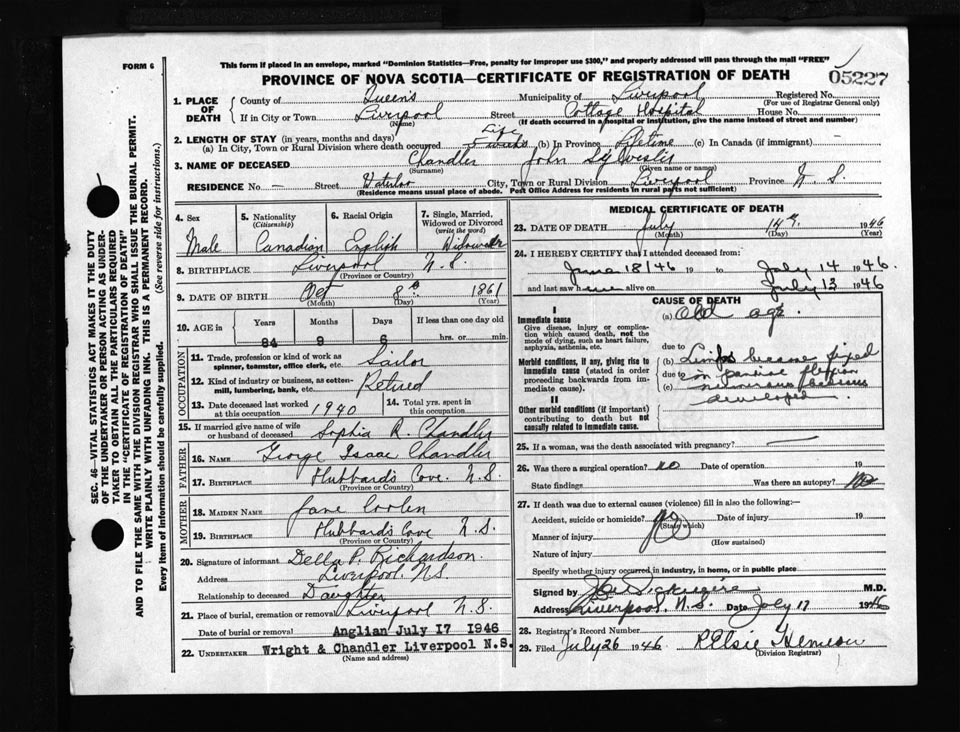 FORM 6
This form if placed in an envelope, marked "Dominion Statistics—Free, penalty for improper use $300," and properly addressed will pass through the mail "FREE"
PROVINCE OF NOVA SCOTIA—CERTIFICATE OF REGISTRATION OF DEATH
05227
1. PLACE OF DEATH
County of Queens Municipality of Liverpool Registered No.
(For use of Registrar General only)
If in City or Town Liverpool Street Cottage Hospital House No.
(Name) (If death occurred in a hospital or institution, give the name instead of street and number)
2. LENGTH OF STAY (in years, months and days) Life
(a) In City, Town or Rural Division where death occurred 5 weeks (b) In Province Lifetime (c) In Canada (if immigrant)
3. NAME OF DECEASED Chandler John Sylvester
(Surname) (Given name or names)
RESIDENCE No. — Street Waterloo City, Town or Rural Division Liverpool Province N. S.
(Residence means usual place of abode. Post Office Address for residents in rural parts not sufficient)
4. Sex
Male
5. Nationality
(Citizenship)
Canadian
6. Racial Origin
English
7. Single, Married, Widowed or Divorced
(write the word)
Widower
8. BIRTHPLACE Liverpool N. S.
(Province or Country)
9. DATE OF BIRTH Oct 8th 1861
(Month) (Day) (Year)
10. AGE in
Years Months Days If less than one day old
84 9 6 hrs. or min.
OCCUPATION
11. Trade, profession or kind of work as spinner, teamster, office clerk, etc.
12. Kind of industry or business, as cotton-mill, lumbering, bank, etc. Retired
13. Date deceased last worked at this occupation 1940
14. Total yrs. spent in this occupation
15. If married give name of wife or husband of deceased Sophia R. Chandler
FATHER
16. NAME George Isaac Chandler
17. BIRTHPLACE Hubbard's Cove. N.S.
(Province or Country)
MOTHER
18. MAIDEN NAME Jane
19. BIRTHPLACE Hubbard's Cove N.S
(Province or Country)
20. Signature of informant Della P. Richardson.
Address Liverpool. N.S.
Relationship to deceased Daughter
21. Place of burial, cremation or removal Liverpool N. S.
Date of burial or removal Anglian July 17 1946
22. UNDERTAKER Wright & Chandler Liverpool N.S.
(Name and address)
MEDICAL CERTIFICATE OF DEATH
23. DATE OF DEATH July 14th 1946
(Month) (Day) (Year)
24. I HEREBY CERTIFY that I attended deceased from:
June 18/46 19 to July 14 1946.
and last saw alive on July 13 1946
CAUSE OF DEATH
I
Immediate cause
Give disease, injury or complication which caused death, not the mode of dying, such as heart failure, asphyxia, asthenia, etc.
(a) Old age.
due to
Morbid conditions, if any, giving rise to immediate cause (stated in order proceeding backwards from immediate cause).
(b) Limbs became fixed
due to in flexion
(c) numerous
developed
II
Other morbid conditions (if important) contributing to death but not causally related to immediate cause.
25. If a woman, was the death associated with pregnancy? —
26. Was there a surgical operation? no Date of operation 19
State findings Was there an autopsy? No
27. If death was due to external causes (violence) fill in also the following:—
Accident, suicide or homicide? No Date of injury 19
(State which)
Manner of injury
(How sustained)
Nature of injury
Specify whether injury occurred in industry, in home, or in public place
Signed by M.D.
Address Liverpool. N.S. Date July 17 1946
28. Registrar's Record Number
29. Filed July 26 1946 R Elsie
(Division Registrar)
SEC. 46—VITAL STATISTICS ACT MAKES IT THE DUTY
OF THE UNDERTAKER OR PERSON ACTING AS UNDER-
TAKER TO OBTAIN ALL THE PARTICULARS REQUIRED
IN THE "CERTIFICATE OF REGISTRATION OF DEATH"
AND TO FILE THE SAME WITH THE DIVISION REGISTRAR WHO SHALL ISSUE THE BURIAL PERMIT.
WRITE PLAINLY WITH UNFADING INK. THIS IS A PERMANENT RECORD.
Every item of information should be carefully supplied. (See reverse side for instructions.)